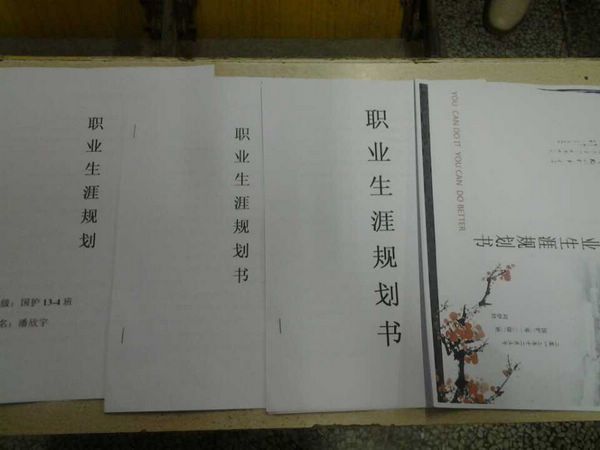 职业生涯规划
级：国护 13-4 班
名：潘欣宇
职业生涯规划书
职业生涯规划书
YOU CAN DO IT YOU CAN DO BETTER
业生涯规划书